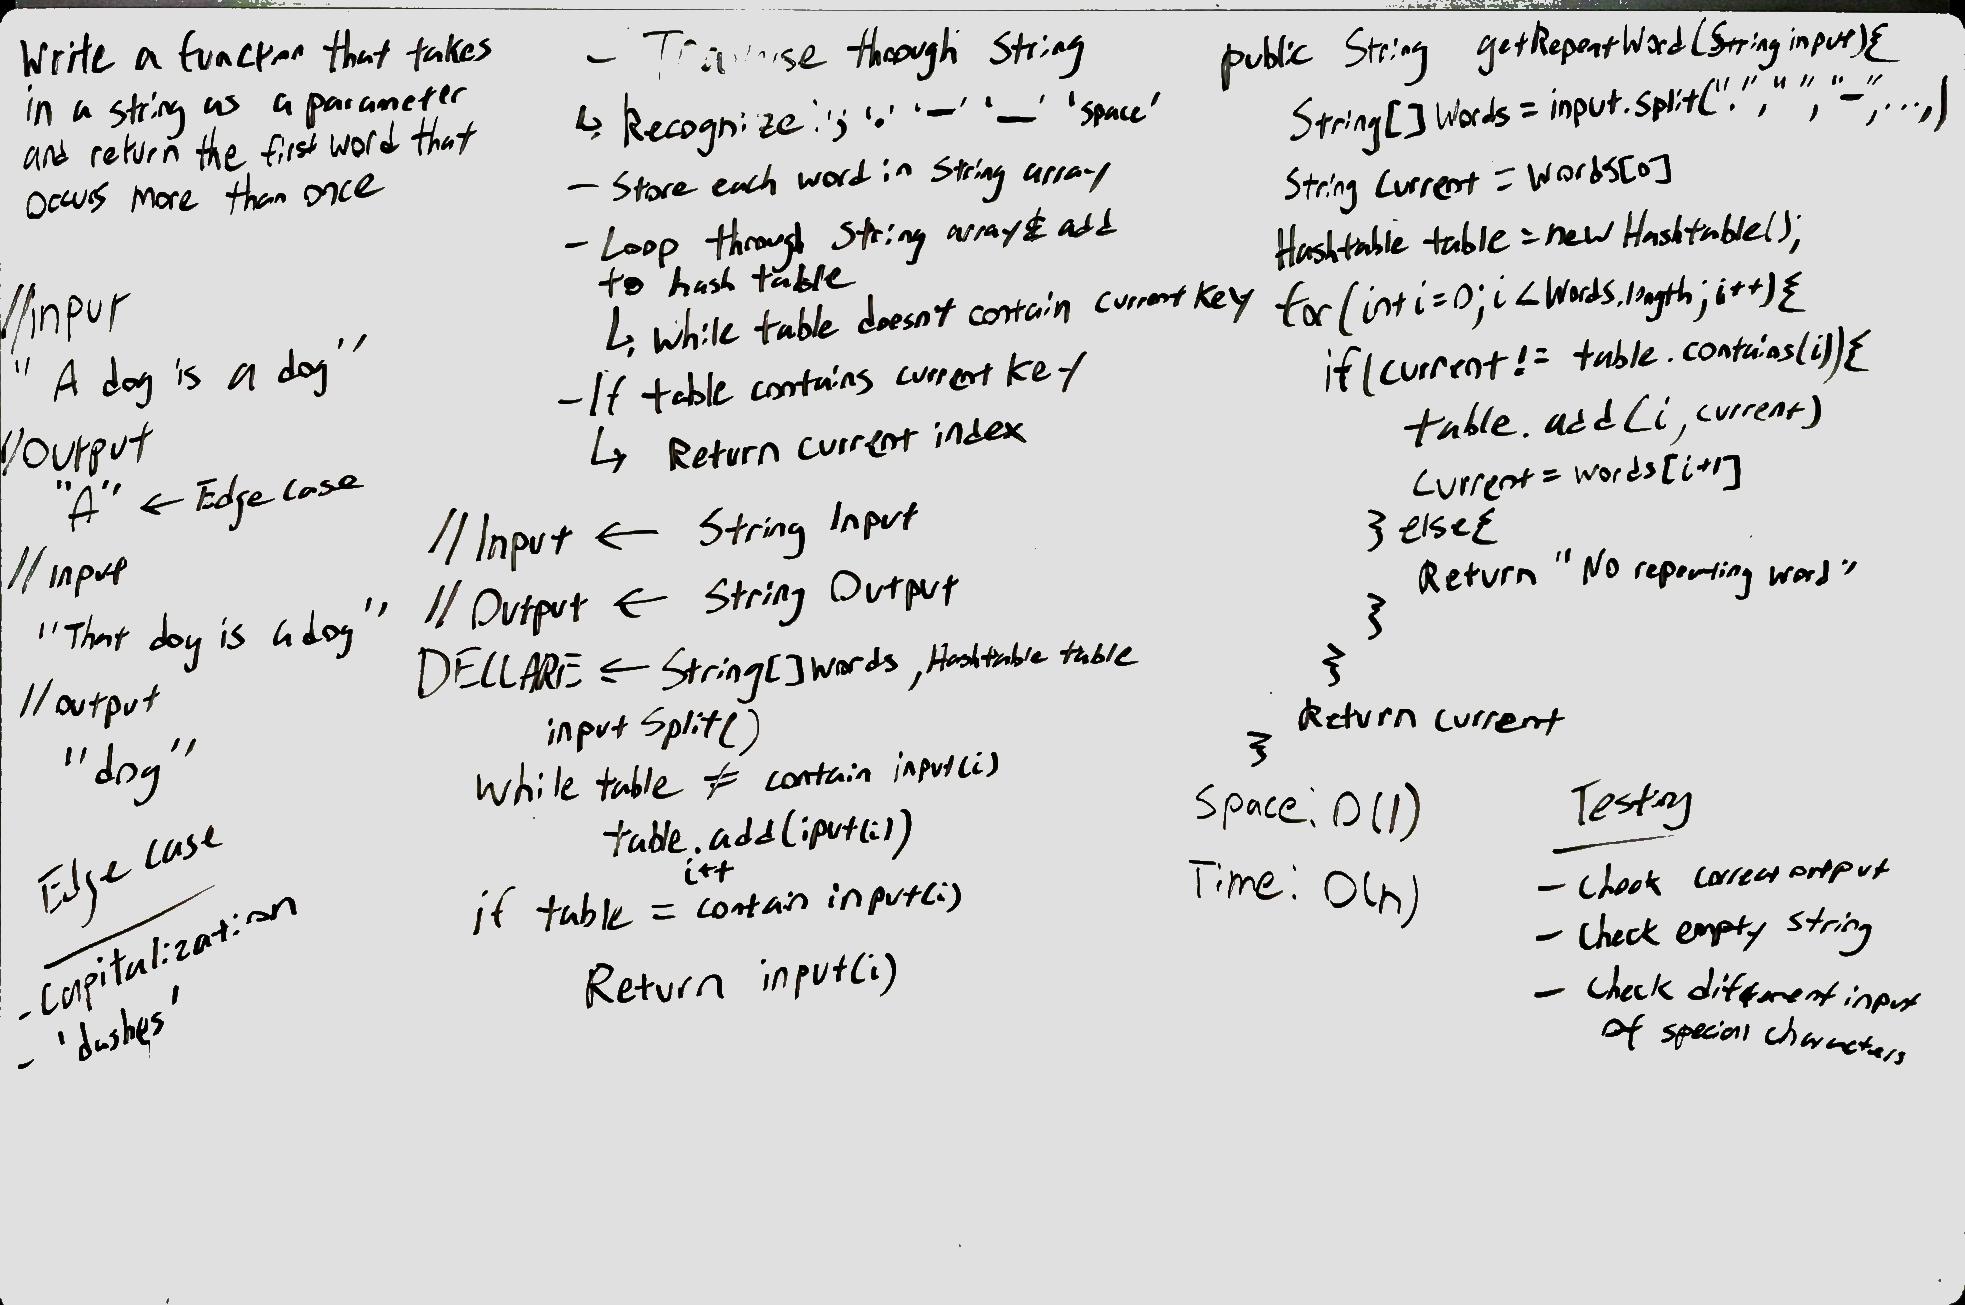 Write a function that takes
in a string as a parameter
and return the first word that
occurs more than once
//input
"A dog is a dog"
//Output
"A" ← Edge case
//input
"That dog is a dog"
//output
"dog"
Edge case
- Capitalization
- 'dashes'
- Traverse through String
↳ Recognize: '; '.' '-' '_' 'space'
- Store each word in String array
- Loop through String array & add
to hash table
↳ while table doesn't contain current key
- If table contains current key
↳ Return current index
//Input ← String Input
//Output ← String Output
DECLARE ← String[] words, Hashtable table
input split()
while table ≠ contain input(i)
table.add(iput(i))
i++
if table = contain input(i)
Return input(i)
public String getRepeatWord(String input){
String[] Words = input.split(".", " ", "-", ...,)
String Current = Words[0]
Hashtable table = new Hashtable();
for(int i=0; i < Words.length; i++){
if(current != table.contains(i)){
table.add(i, current)
Current = words[i+1]
} else{
Return "No repeating word"
}
}
Return current
}
Space: O(1)
Time: O(n)
Testing
- Check correct output
- Check empty string
- Check different input
of special characters